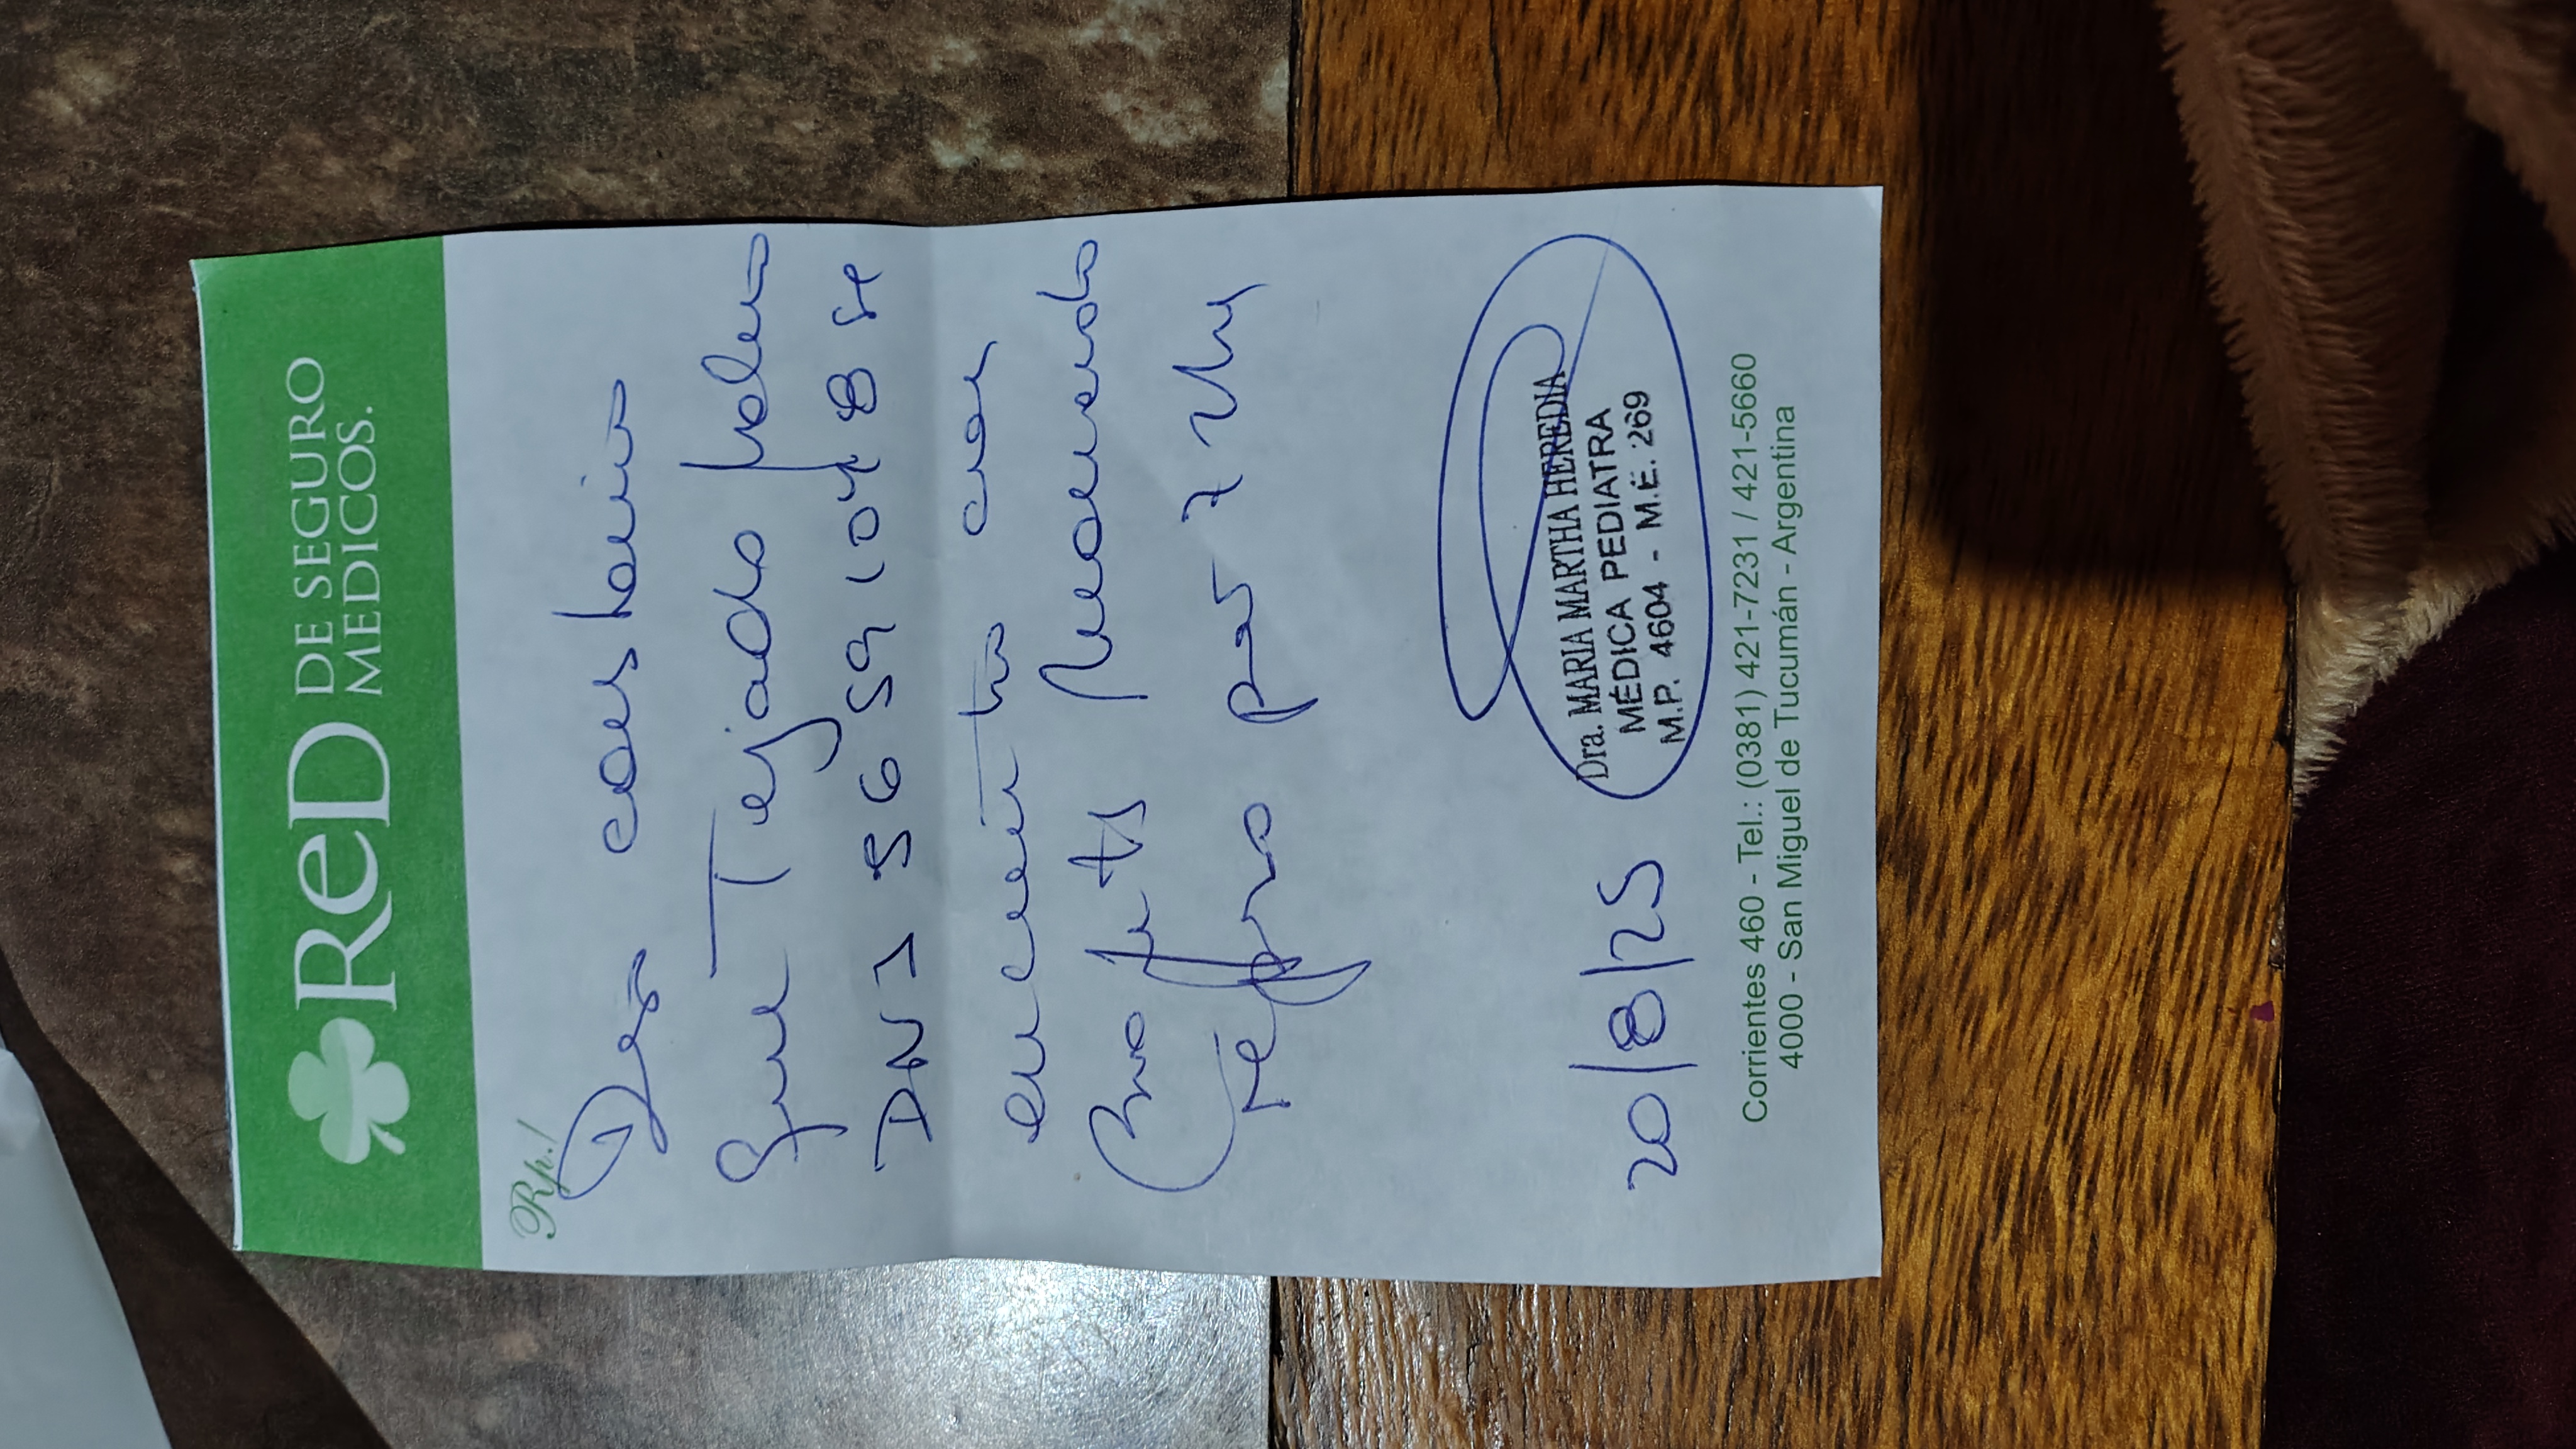 ReD DE SEGURO
MEDICOS.
Rp./
Dejo constancia
que Tejado
DNI 56591048 se
encuentra con
recomiendo
reposo por 72 hs
20/8/25
Dra. MARIA MARTHA HEREDIA
MÉDICA PEDIATRA
M.P. 4604 - M.E. 269
Corrientes 460 - Tel.: (0381) 421-7231 / 421-5660
4000 - San Miguel de Tucumán - Argentina